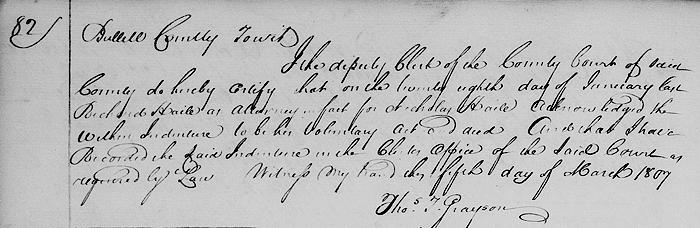 82
Bullitt County Towit
I the deputy Clerk of the County Court of said
County do hereby certify that on the twenty eighth day of January last
Richard Haile as Attorney in fact for Nicholas Haile acknowledged the
Within Indenture to be his Voluntary act and deed And that I have
Recorded the said Indenture in the Clerks office of the said Court as
required by Law Witness my hand this fifth day of March 1807
Thos. T. Grayson